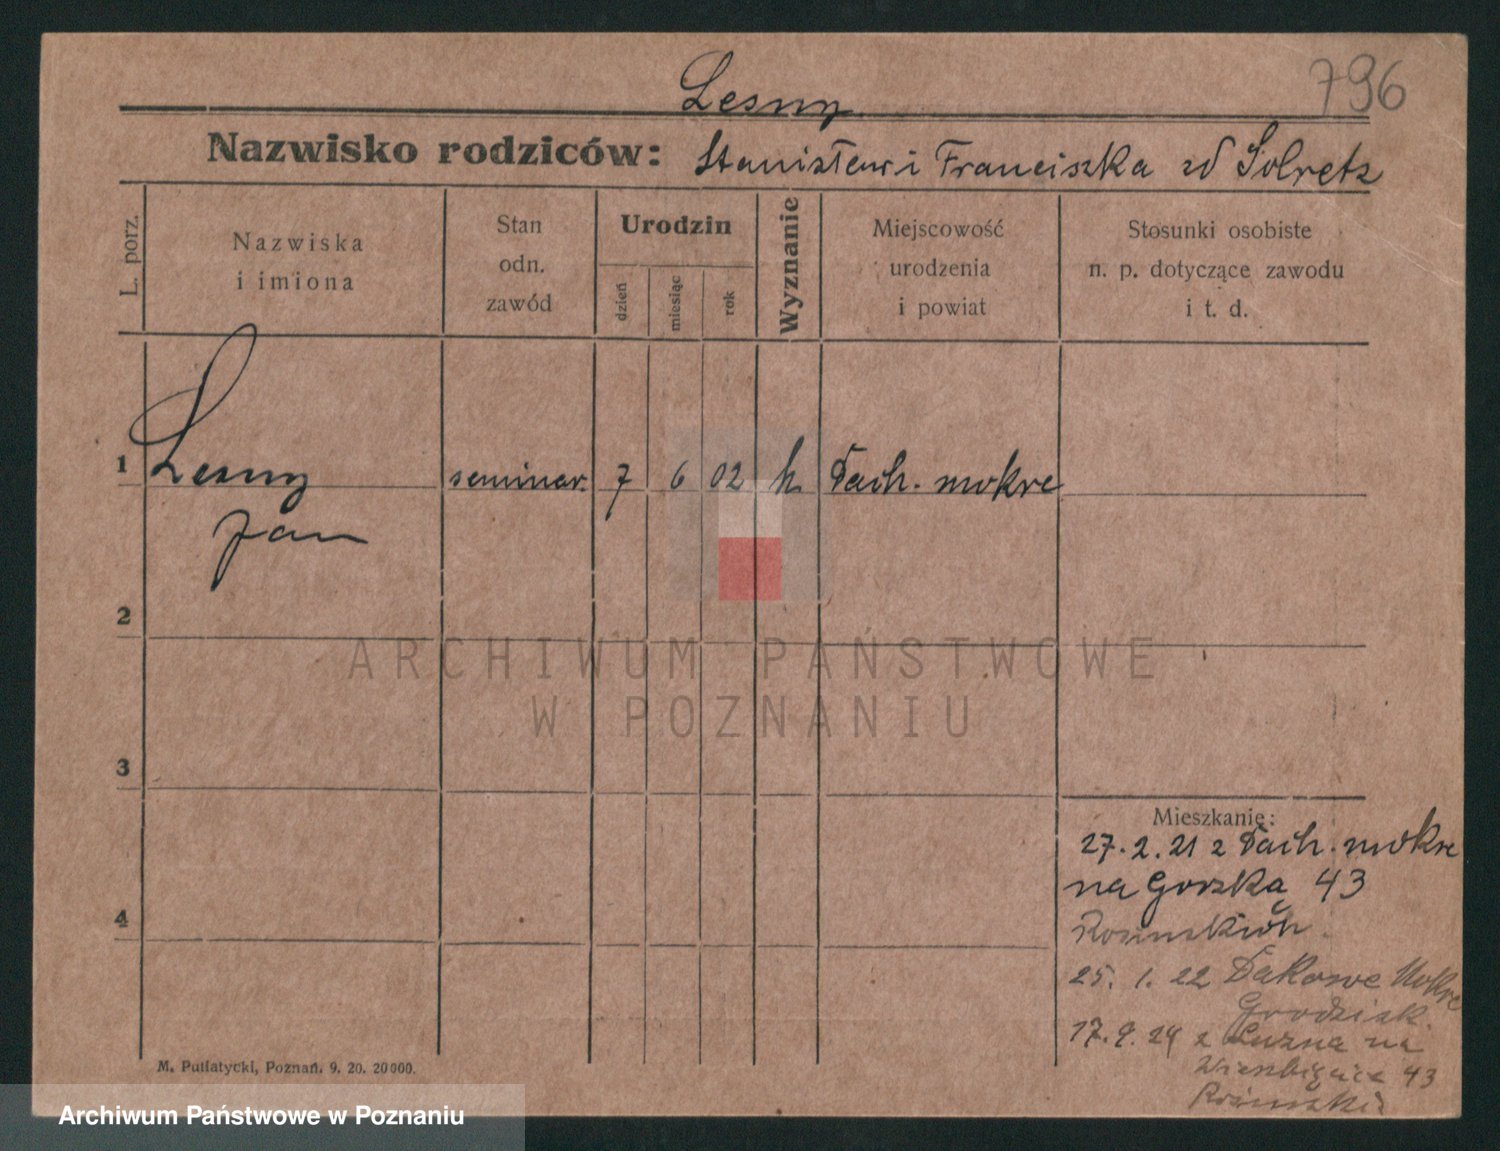 796
Lesny
Nazwisko rodziców: Stanisław i Franciszka zd Solretz
L. porz.
Nazwiska
i imiona
Stan
odn.
zawód
Urodzin
dzień
miesiąc
rok
Wyznanie
Miejscowość
urodzenia
i powiat
Stosunki osobiste
n. p. dotyczące zawodu
i t. d.
1 Lesny seminar. 7 6 02 k mokre
Jan
2
ARCHIWUM PAŃSTWOWE
W POZNANIU
3
Mieszkanie:
27. 2. 21 z mokre
na Gorzka 43
4
25. 1. 22 Mokre
Grodzisk.
17. 9. 24 z na
43
M. Putiatycki, Poznań. 9. 20. 20000.
Archiwum Państwowe w Poznaniu